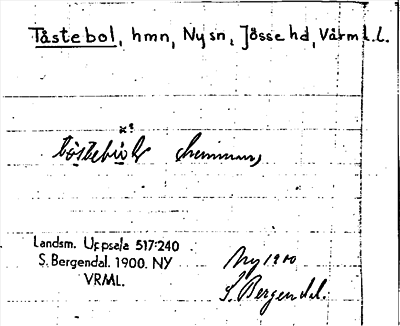 Tåstebol, hmn, Ny sn, Jösse hd, Värml.l.
hemman,
Landsm. Uppsala 517:240
S. Bergendal. 1900. NY
VRML.
Ny 1900
S. Bergendal.